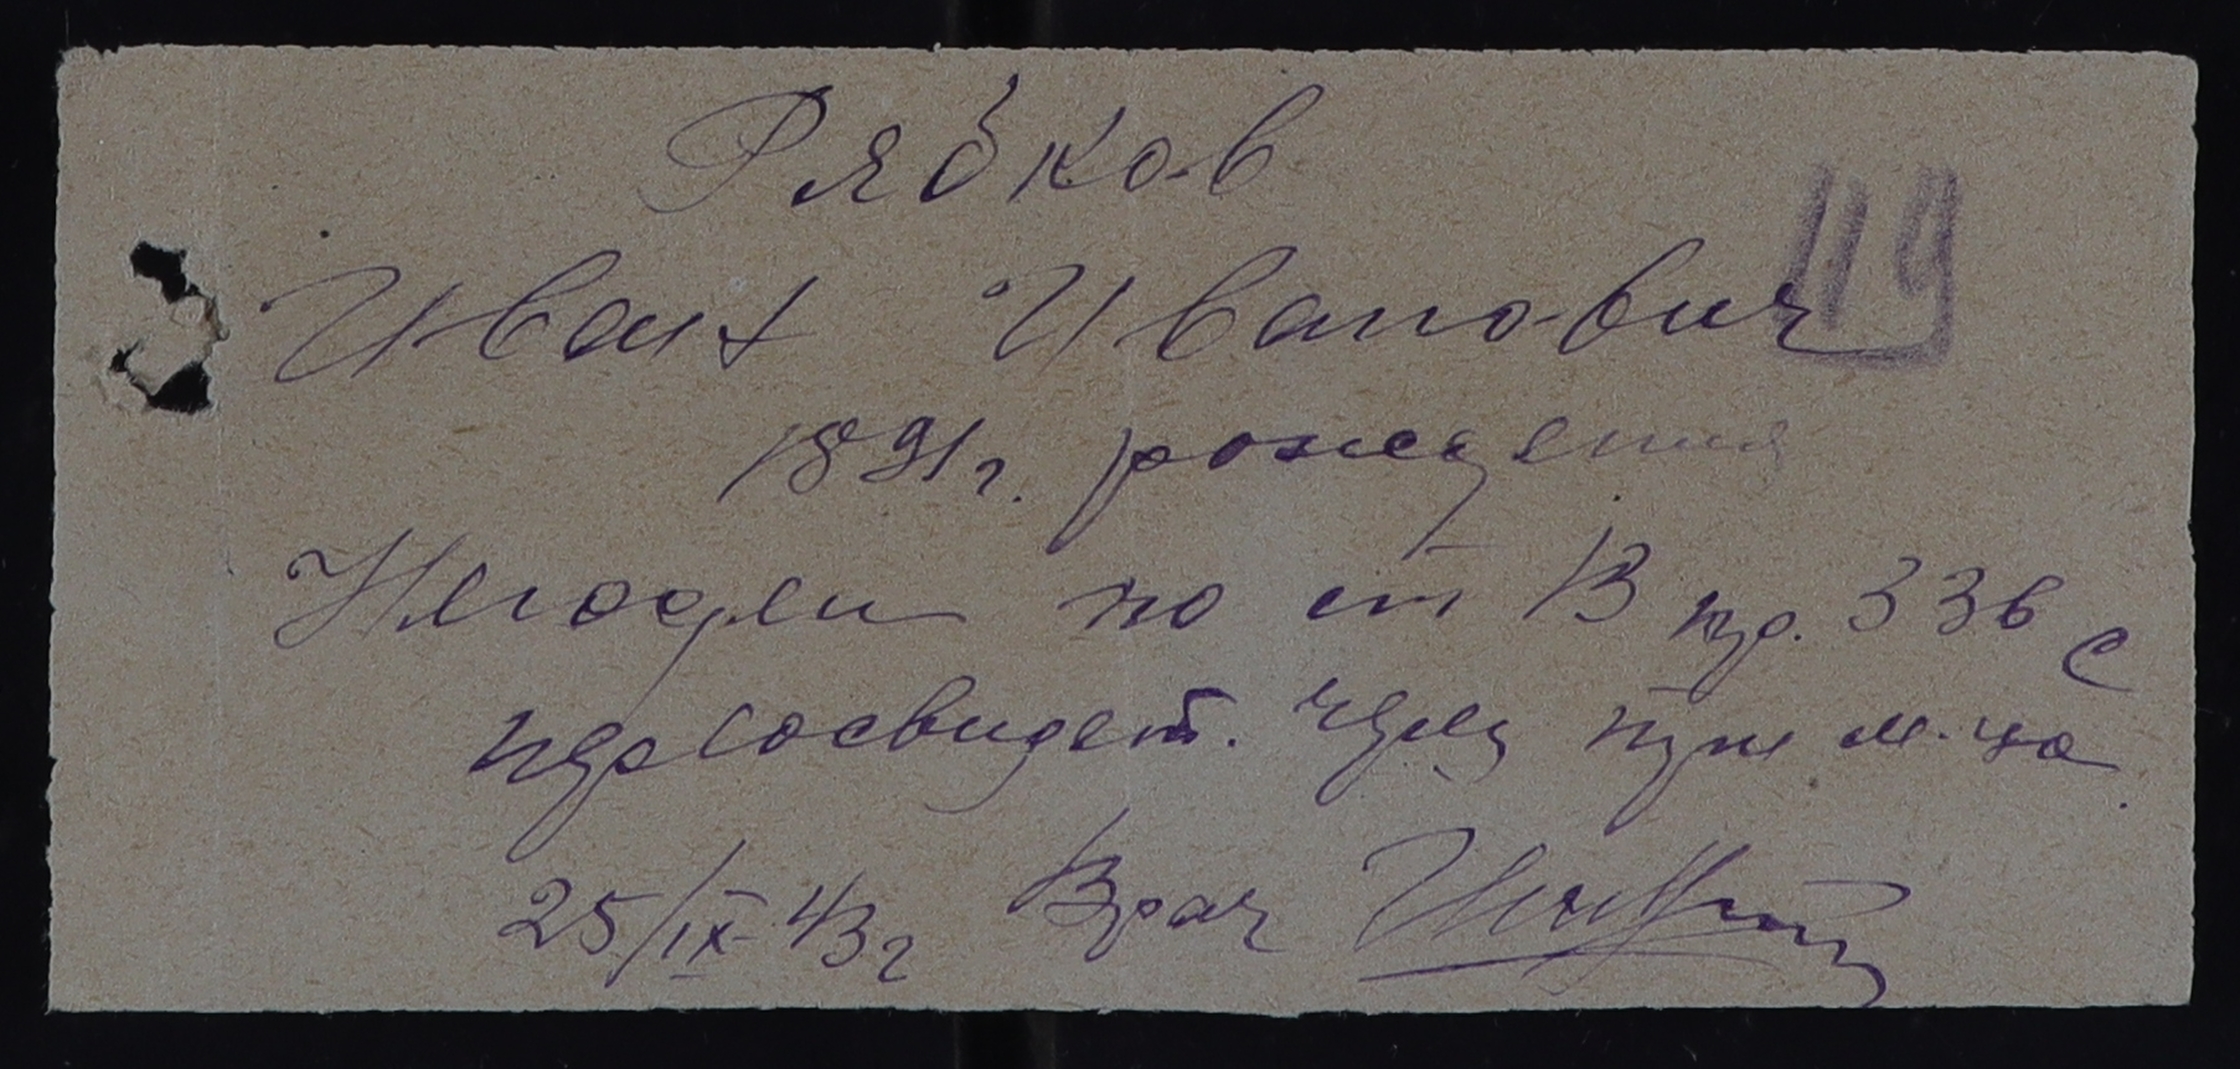 Рябков
119
Иван Иванович
1891 г. рождения
Негоден по ст 13 пр. 336 с
пересвидет. через три м-ца.
25/IX 43 г Врач